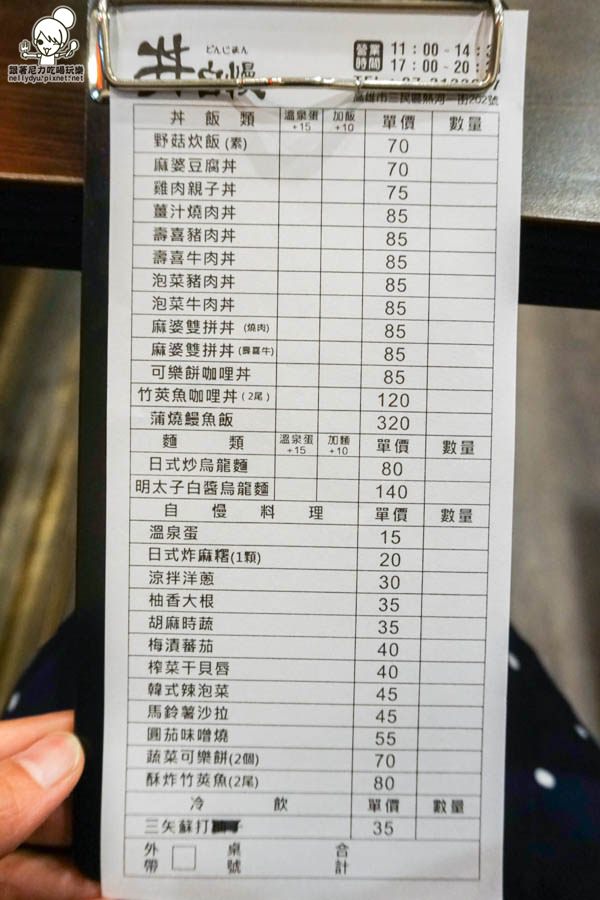 跟著尼力吃喝玩樂
nellydyu.pixnet.net
どんじまん
丼自慢
營業時間 11:00-14:3
17:00-20:3
TEL 07-3
高雄市三民區熱河一街202號
丼飯類 溫泉蛋+15 加飯+10 單價 數量
野菇炊飯(素) 70
麻婆豆腐丼 70
雞肉親子丼 75
薑汁燒肉丼 85
壽喜豬肉丼 85
壽喜牛肉丼 85
泡菜豬肉丼 85
泡菜牛肉丼 85
麻婆雙拼丼 (燒肉) 85
麻婆雙拼丼 (壽喜牛) 85
可樂餅咖哩丼 85
竹莢魚咖哩丼 (2尾) 120
蒲燒鰻魚飯 320
麵類 溫泉蛋+15 加麵+10 單價 數量
日式炒烏龍麵 80
明太子白醬烏龍麵 140
自慢料理 單價 數量
溫泉蛋 15
日式炸麻糬(1顆) 20
涼拌洋蔥 30
柚香大根 35
胡麻時蔬 35
梅漬蕃茄 40
榨菜干貝唇 40
韓式辣泡菜 45
馬鈴薯沙拉 45
圓茄味噌燒 55
蔬菜可樂餅(2個) 70
酥炸竹莢魚(2尾) 80
冷飲 單價 數量
三矢蘇打 35
外帶 桌號 合計